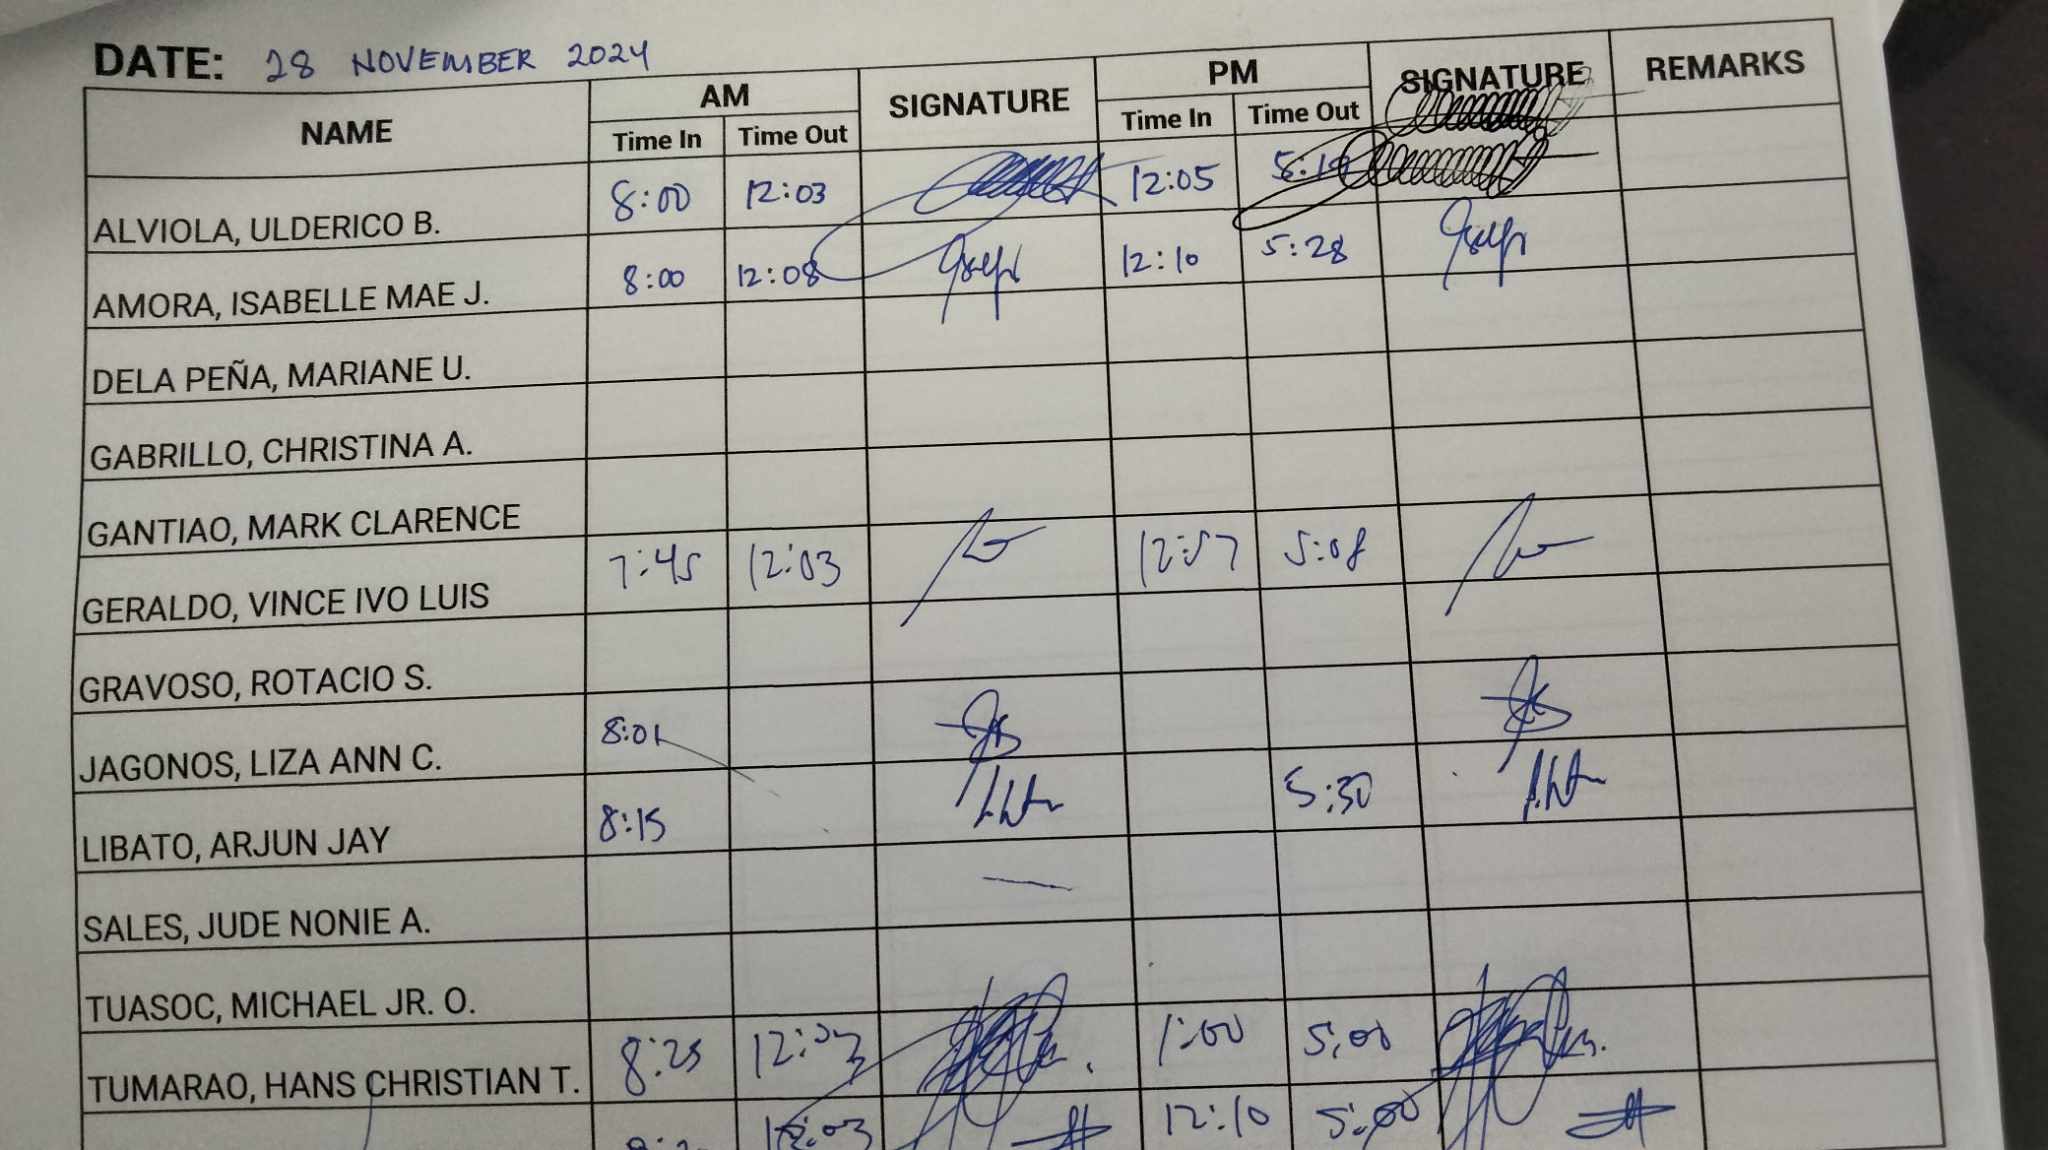 DATE: 28 NOVEMBER 2024
NAME AM SIGNATURE PM SIGNATURE REMARKS
Time In Time Out Time In Time Out
ALVIOLA, ULDERICO B. 8:00 12:03 12:05 5:19
AMORA, ISABELLE MAE J. 8:00 12:08 12:10 5:28
DELA PEÑA, MARIANE U.
GABRILLO, CHRISTINA A.
GANTIAO, MARK CLARENCE
GERALDO, VINCE IVO LUIS 7:45 12:03 12:57 5:08
GRAVOSO, ROTACIO S.
JAGONOS, LIZA ANN C. 8:01
LIBATO, ARJUN JAY 8:15 5:30
SALES, JUDE NONIE A.
TUASOC, MICHAEL JR. O.
TUMARAO, HANS CHRISTIAN T. 8:25 12:03 1:00 5:00
12:03 12:10 5:00